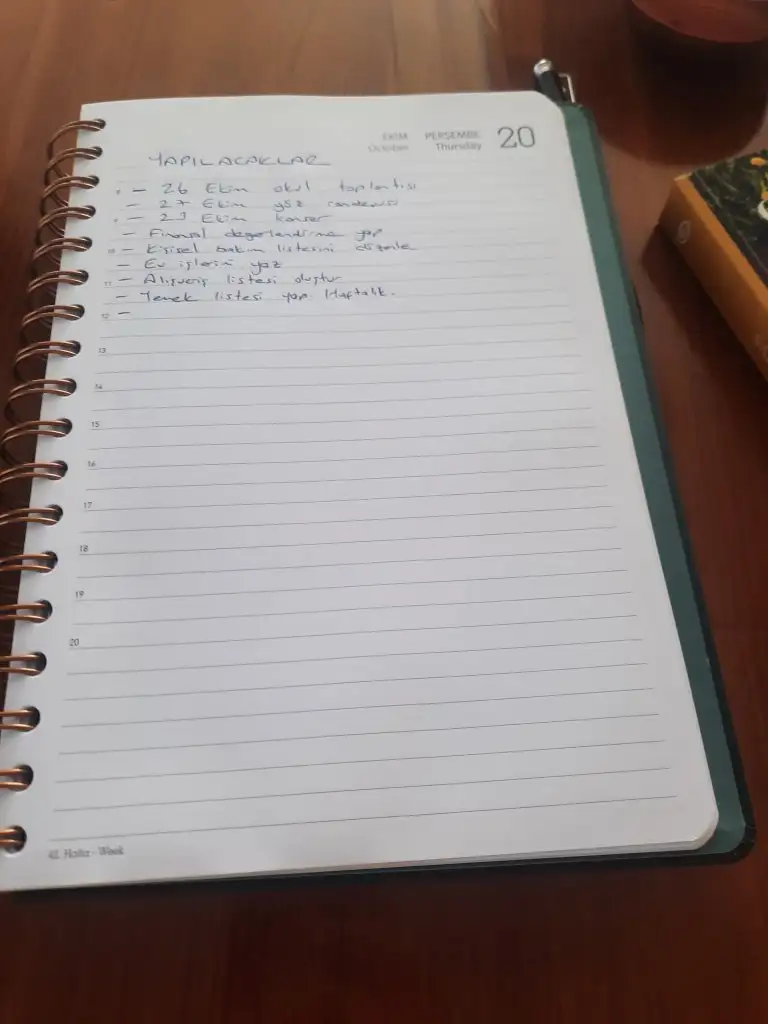 EKİM PERŞEMBE 20
October Thursday
YAPILACAKLAR
- 26 Ekim okul toplantısı
- 27 Ekim göz randevusu
- 29 Ekim konser
- Finansal değerlendirme yap
10 - Kişisel bakım listesini düzenle
- Ev işlerini yaz
11 - Alışveriş listesi oluştur
- Yemek listesi yap Haftalık.
12 -
13
14
15
16
17
18
19
20
42. Hafta - Week